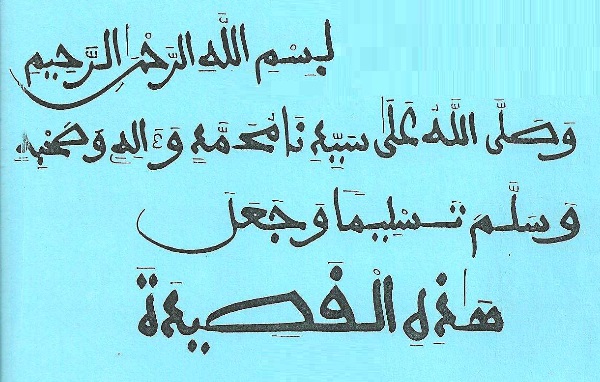 بِسْمِ اللَّهِ الرَّحْمٰنِ الرَّحِيمِ
وَصَلَّى اللَّهُ عَلَى سَيِّدِنَا مُحَمَّدٍ وَءَالِهِ وَصَحْبِهِ
وَسَلَّمَ تَسْلِيمًا وَجَعَلَ
هَذِهِ الْقَصِيدَةَ